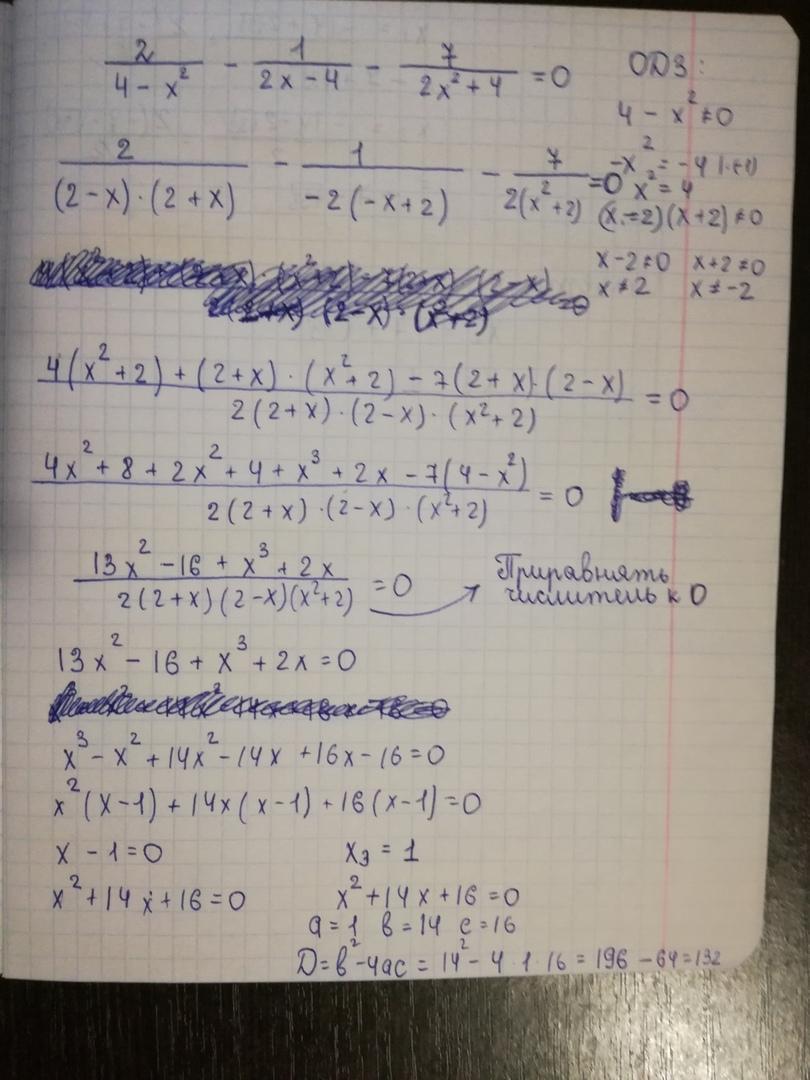 2/(4 - x²) - 1/(2x - 4) - 7/(2x² + 4) = 0
ОДЗ:
4 - x² ≠ 0
-x² = -4 |·(-1)
x² = 4
(x-2)(x+2) ≠ 0
x-2 ≠ 0 x+2 ≠ 0
x ≠ 2 x ≠ -2
2/((2-x)·(2+x)) - 1/(-2(-x+2)) - 7/(2(x²+2)) = 0
(4(x²+2) + (2+x)·(x²+2) - 7(2+x)·(2-x))/(2(2+x)·(2-x)·(x²+2)) = 0
(4x² + 8 + 2x² + 4 + x³ + 2x - 7(4-x²))/(2(2+x)·(2-x)·(x²+2)) = 0
(13x² - 16 + x³ + 2x)/(2(2+x)(2-x)(x²+2)) = 0
Приравнять
числитель к 0
13x² - 16 + x³ + 2x = 0
x³ - x² + 14x² - 14x + 16x - 16 = 0
x²(x-1) + 14x(x-1) + 16(x-1) = 0
x - 1 = 0 x₃ = 1
x² + 14x + 16 = 0 x² + 14x + 16 = 0
a = 1 b = 14 c = 16
D = b² - 4ac = 14² - 4·1·16 = 196 - 64 = 132